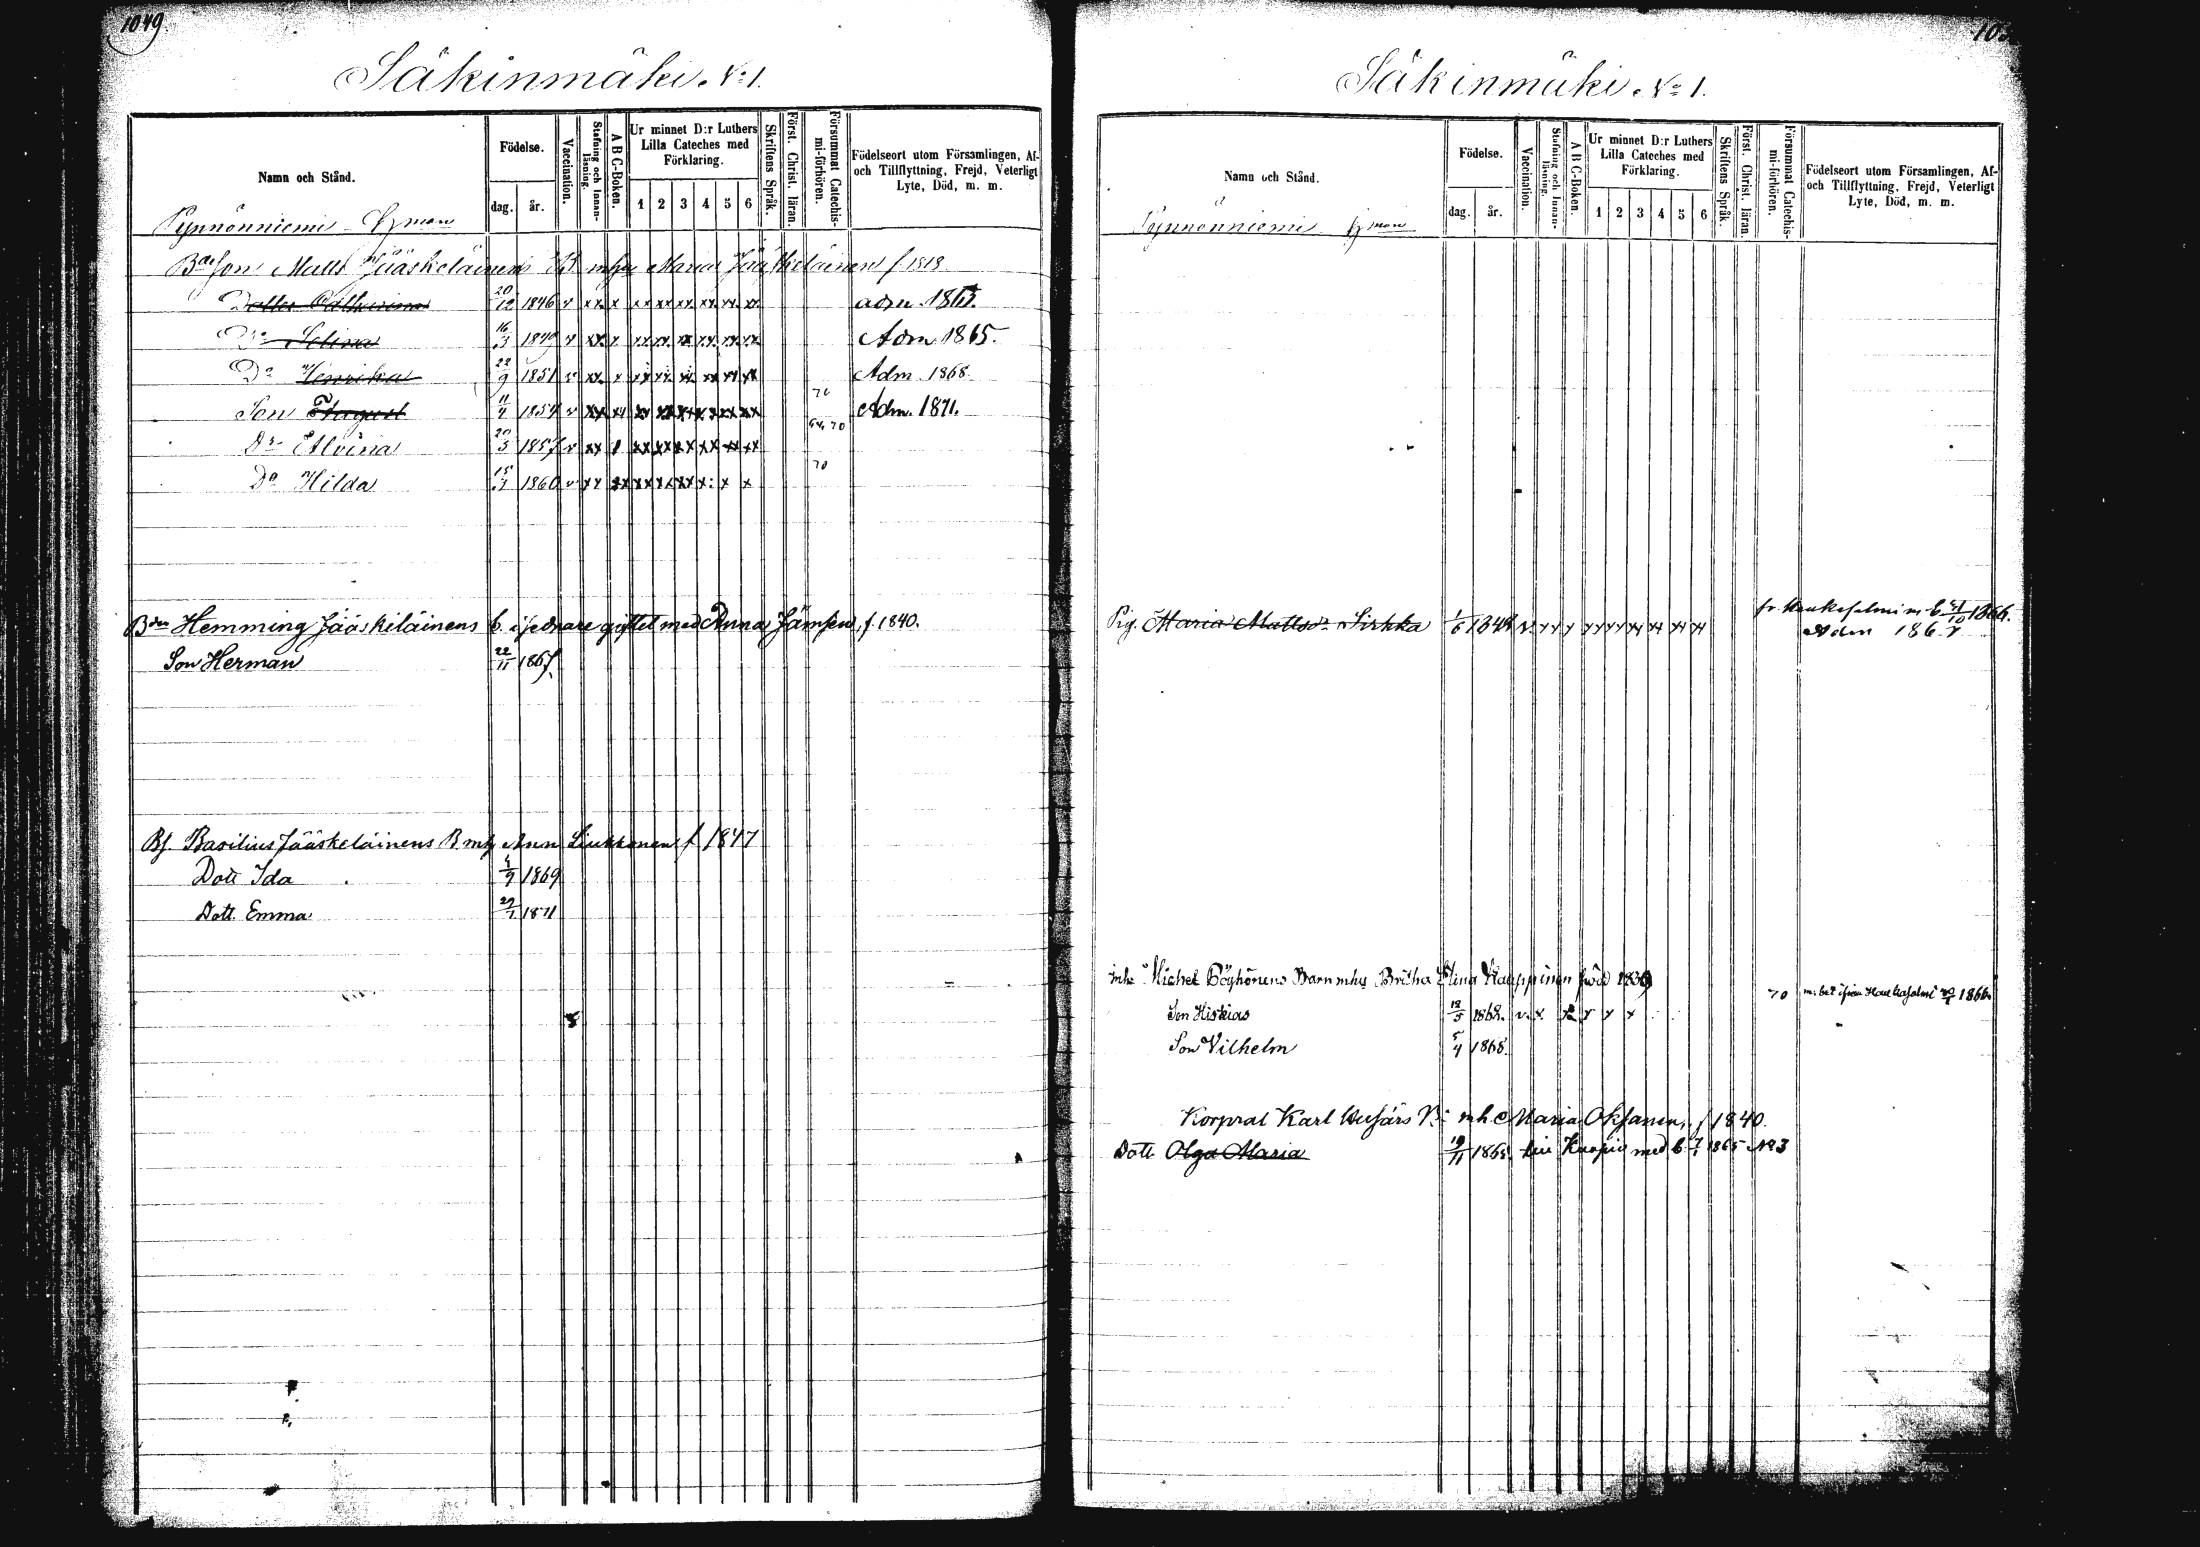 1049.
Säkinmäki No 1.
Namn och Stånd.
Födelse.
dag. år.
Vaccination.
Stafning och Innanläsning.
A B C-Boken.
Ur minnet D:r Luthers Lilla Cateches med Förklaring.
1 2 3 4 5 6
Skriftens Språk.
Först. Christ. läran.
Försummat Catechismi-förhören.
Födelseort utom Församlingen, Af- och Tillflyttning, Frejd, Veterligt Lyte, Död, m. m.
Pynnönniemi
Matts Jääskeläinens mhu Maria Jääskeläinen f 1818
Dotter Catharina 20/12 1846 v xx x xx xx xx xx xx xx adm.
Do Selina 16/3 1849 v xx x xx xx xx xx xx xx Adm 1865.
Do Henrika 22/9 1851 v xx x xx xx xx xx xx xx Adm. 1868.
70
Son August 11/4 1854 v xx xx xx xx xx xx xx Adm. 1871.
Do Alvina 20/3 1857 v xx xx xx xx xx xx xx
70
Do Hilda 15/3 1860 v xx
Bden Hemming Jääskeläinens b. i sednare giftet med Anna Jämsen, f. 1840.
Son Herman 22/11 1867.
Bf. Basilius Jääskeläinens B. mh Anna Liukkonen f 1847
Dott Ida 4/9 1869
Dott. Emma 29/1 1871
Säkinmäki No 1.
Namn och Stånd.
Födelse.
dag. år.
Vaccination.
Stafning och Innanläsning.
A B C-Boken.
Ur minnet D:r Luthers Lilla Cateches med Förklaring.
1 2 3 4 5 6
Skriftens Språk.
Först. Christ. läran.
Försummat Catechismi-förhören.
Födelseort utom Församlingen, Af- och Tillflyttning, Frejd, Veterligt Lyte, Död, m. m.
Pynnönniemi
Pig. Maria Mattsdr Sirkka 1/6 1848 fr. Haukasalmi m. b. 1866.
Adm
inh. Michel Pöyhönens Barn mhu Britha Elina Kauppinen född 1839
70 m. bet. ifrån Haukasalmi 1866.
Son Hiskias 18/5 1862. v. x
Son Vilhelm 5/4 1868.
Korpral Karl Husfärs B: mh Maria Oksanen, f 1840.
Dott Olga Maria 19/11 1862. till Kuopio med b. 7/1 1865 No 3